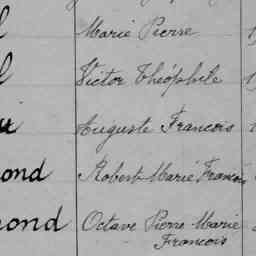 Marie Pierre
Victor Théophile
Auguste Francois
ond Robert Marie Francois
ond Octave Pierre Marie
Francois